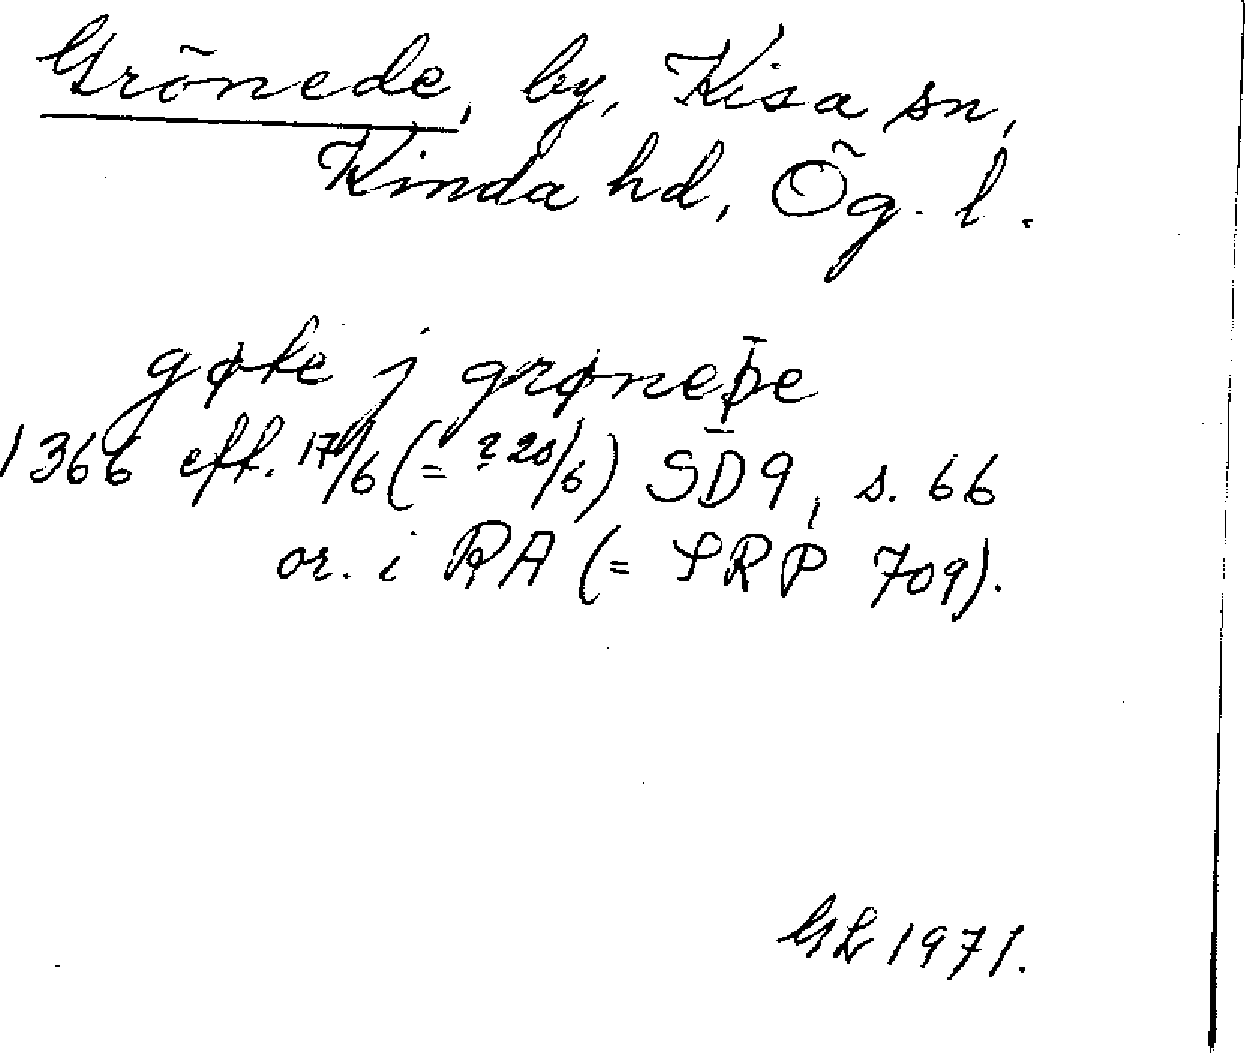 Grönede, by, Kisa sn,
Kinda hd, Ög. l.
gøte j grøneþe
1366 eft. 17/6 (= ? 20/6) SD 9, s. 66
or. i RA (= SRP 709).
GL 1971.